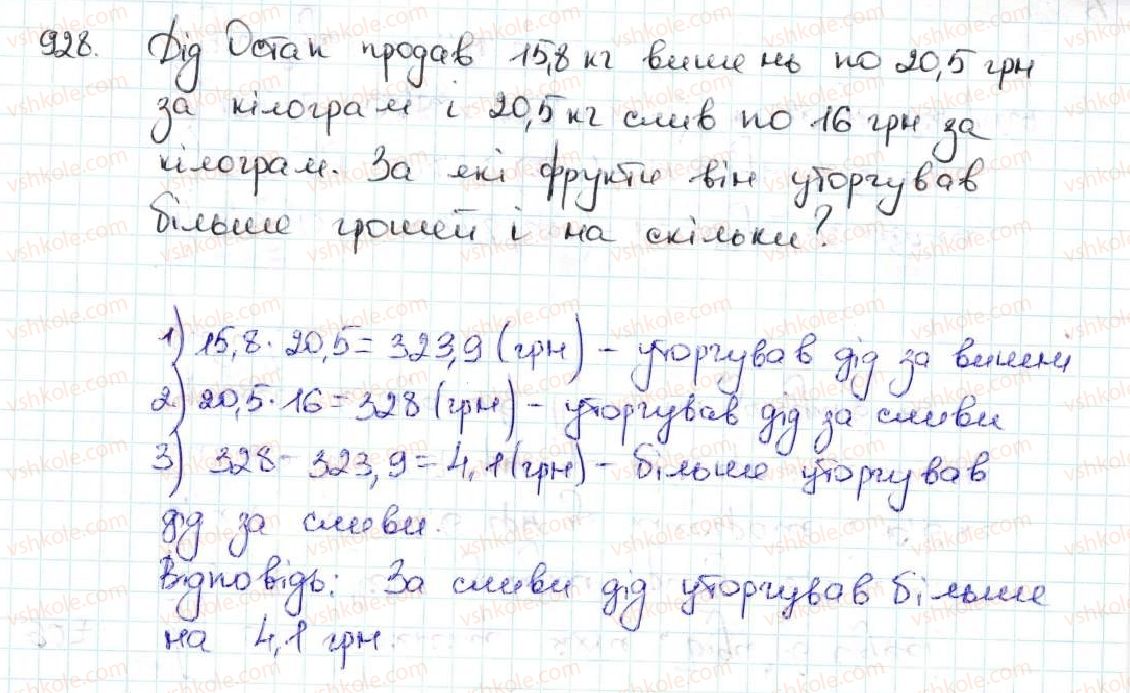 928. Дід Остап продав 15,8 кг вишень по 20,5 грн
за кілограм і 20,5 кг слив по 16 грн за
кілограм. За які фрукти він уторгував
більше грошей і на скільки?
1) 15,8 · 20,5 = 323,9 (грн) - уторгував дід за вишні
2) 20,5 · 16 = 328 (грн) - уторгував дід за сливи
3) 328 - 323,9 = 4,1 (грн) - більше уторгував
дід за сливи.
Відповідь: За сливи дід уторгував більше
на 4,1 грн.